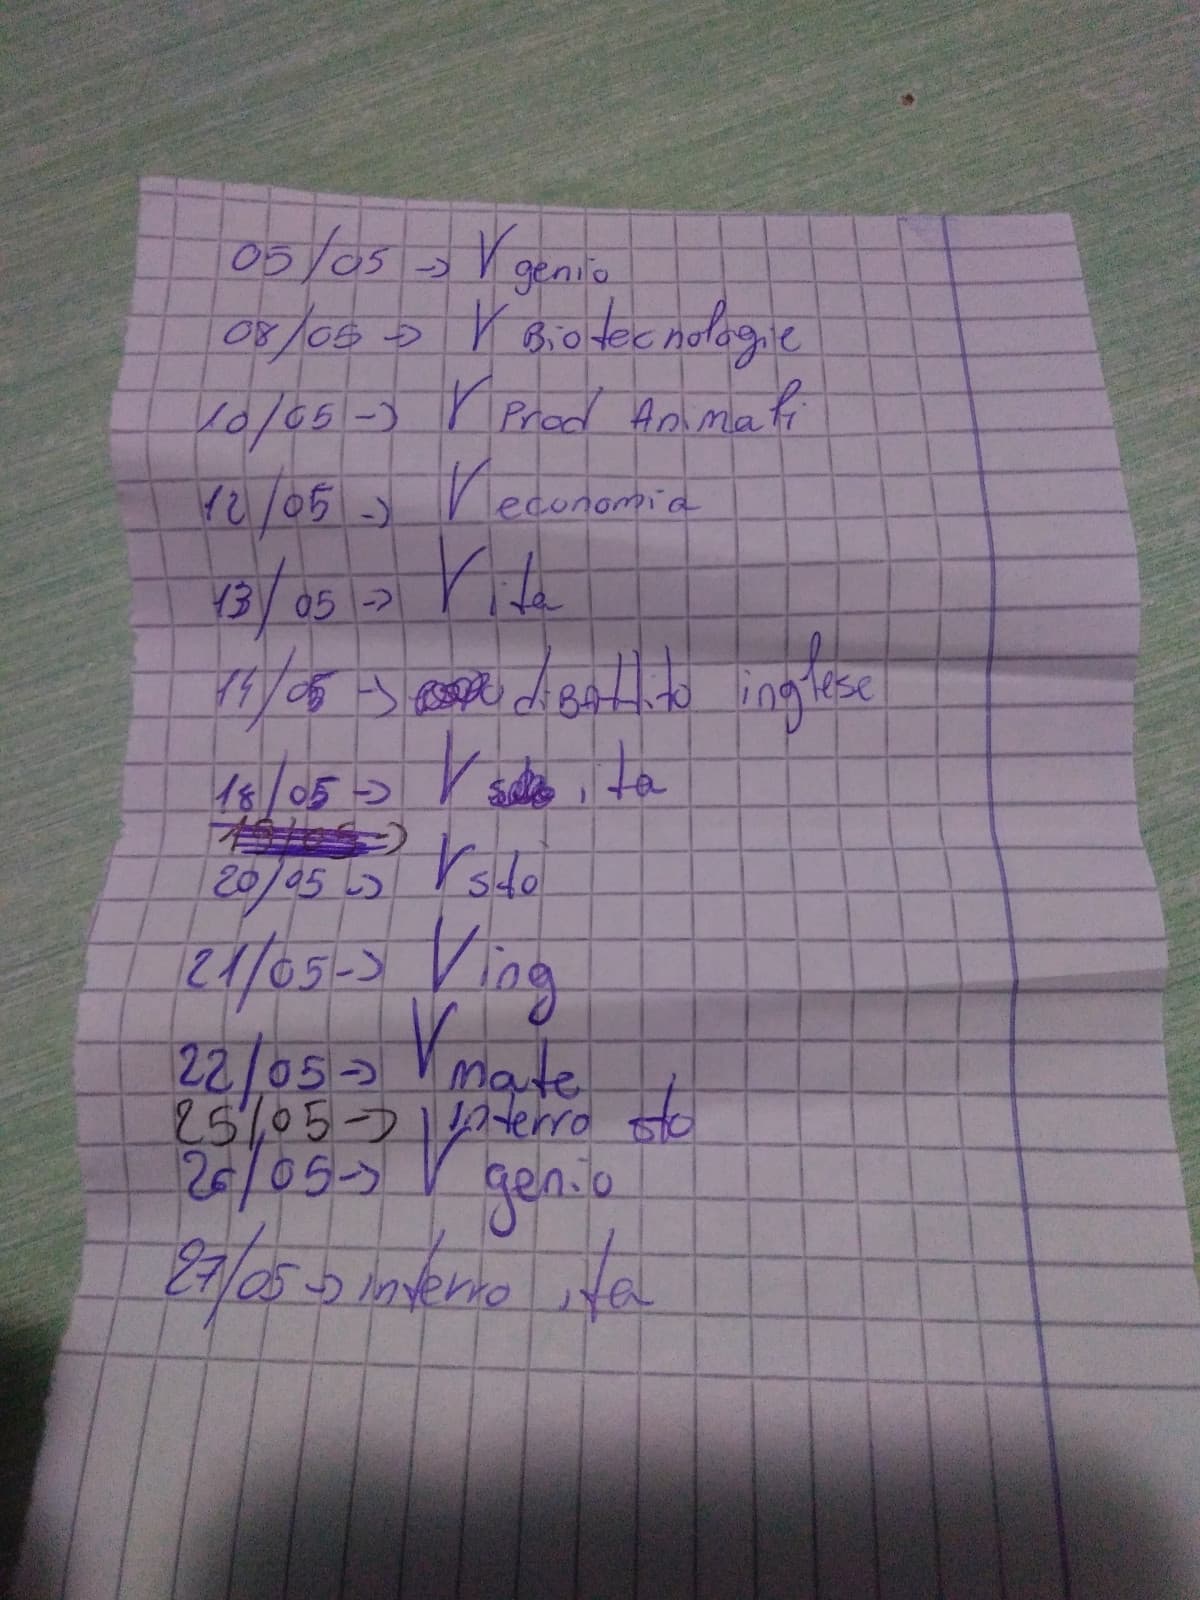 05/05 -> V genio
08/05 -> V Biotecnologie
10/05 -> V Prod Animali
12/05 -> V economia
13/05 -> V ita
14/05 -> diBAttito inglese
18/05 -> V ita
19/05 ->
20/05 -> V sto
21/05 -> V ing
22/05 -> V mate
25/05 -> interro sto
26/05 -> V genio
27/05 -> interro ita